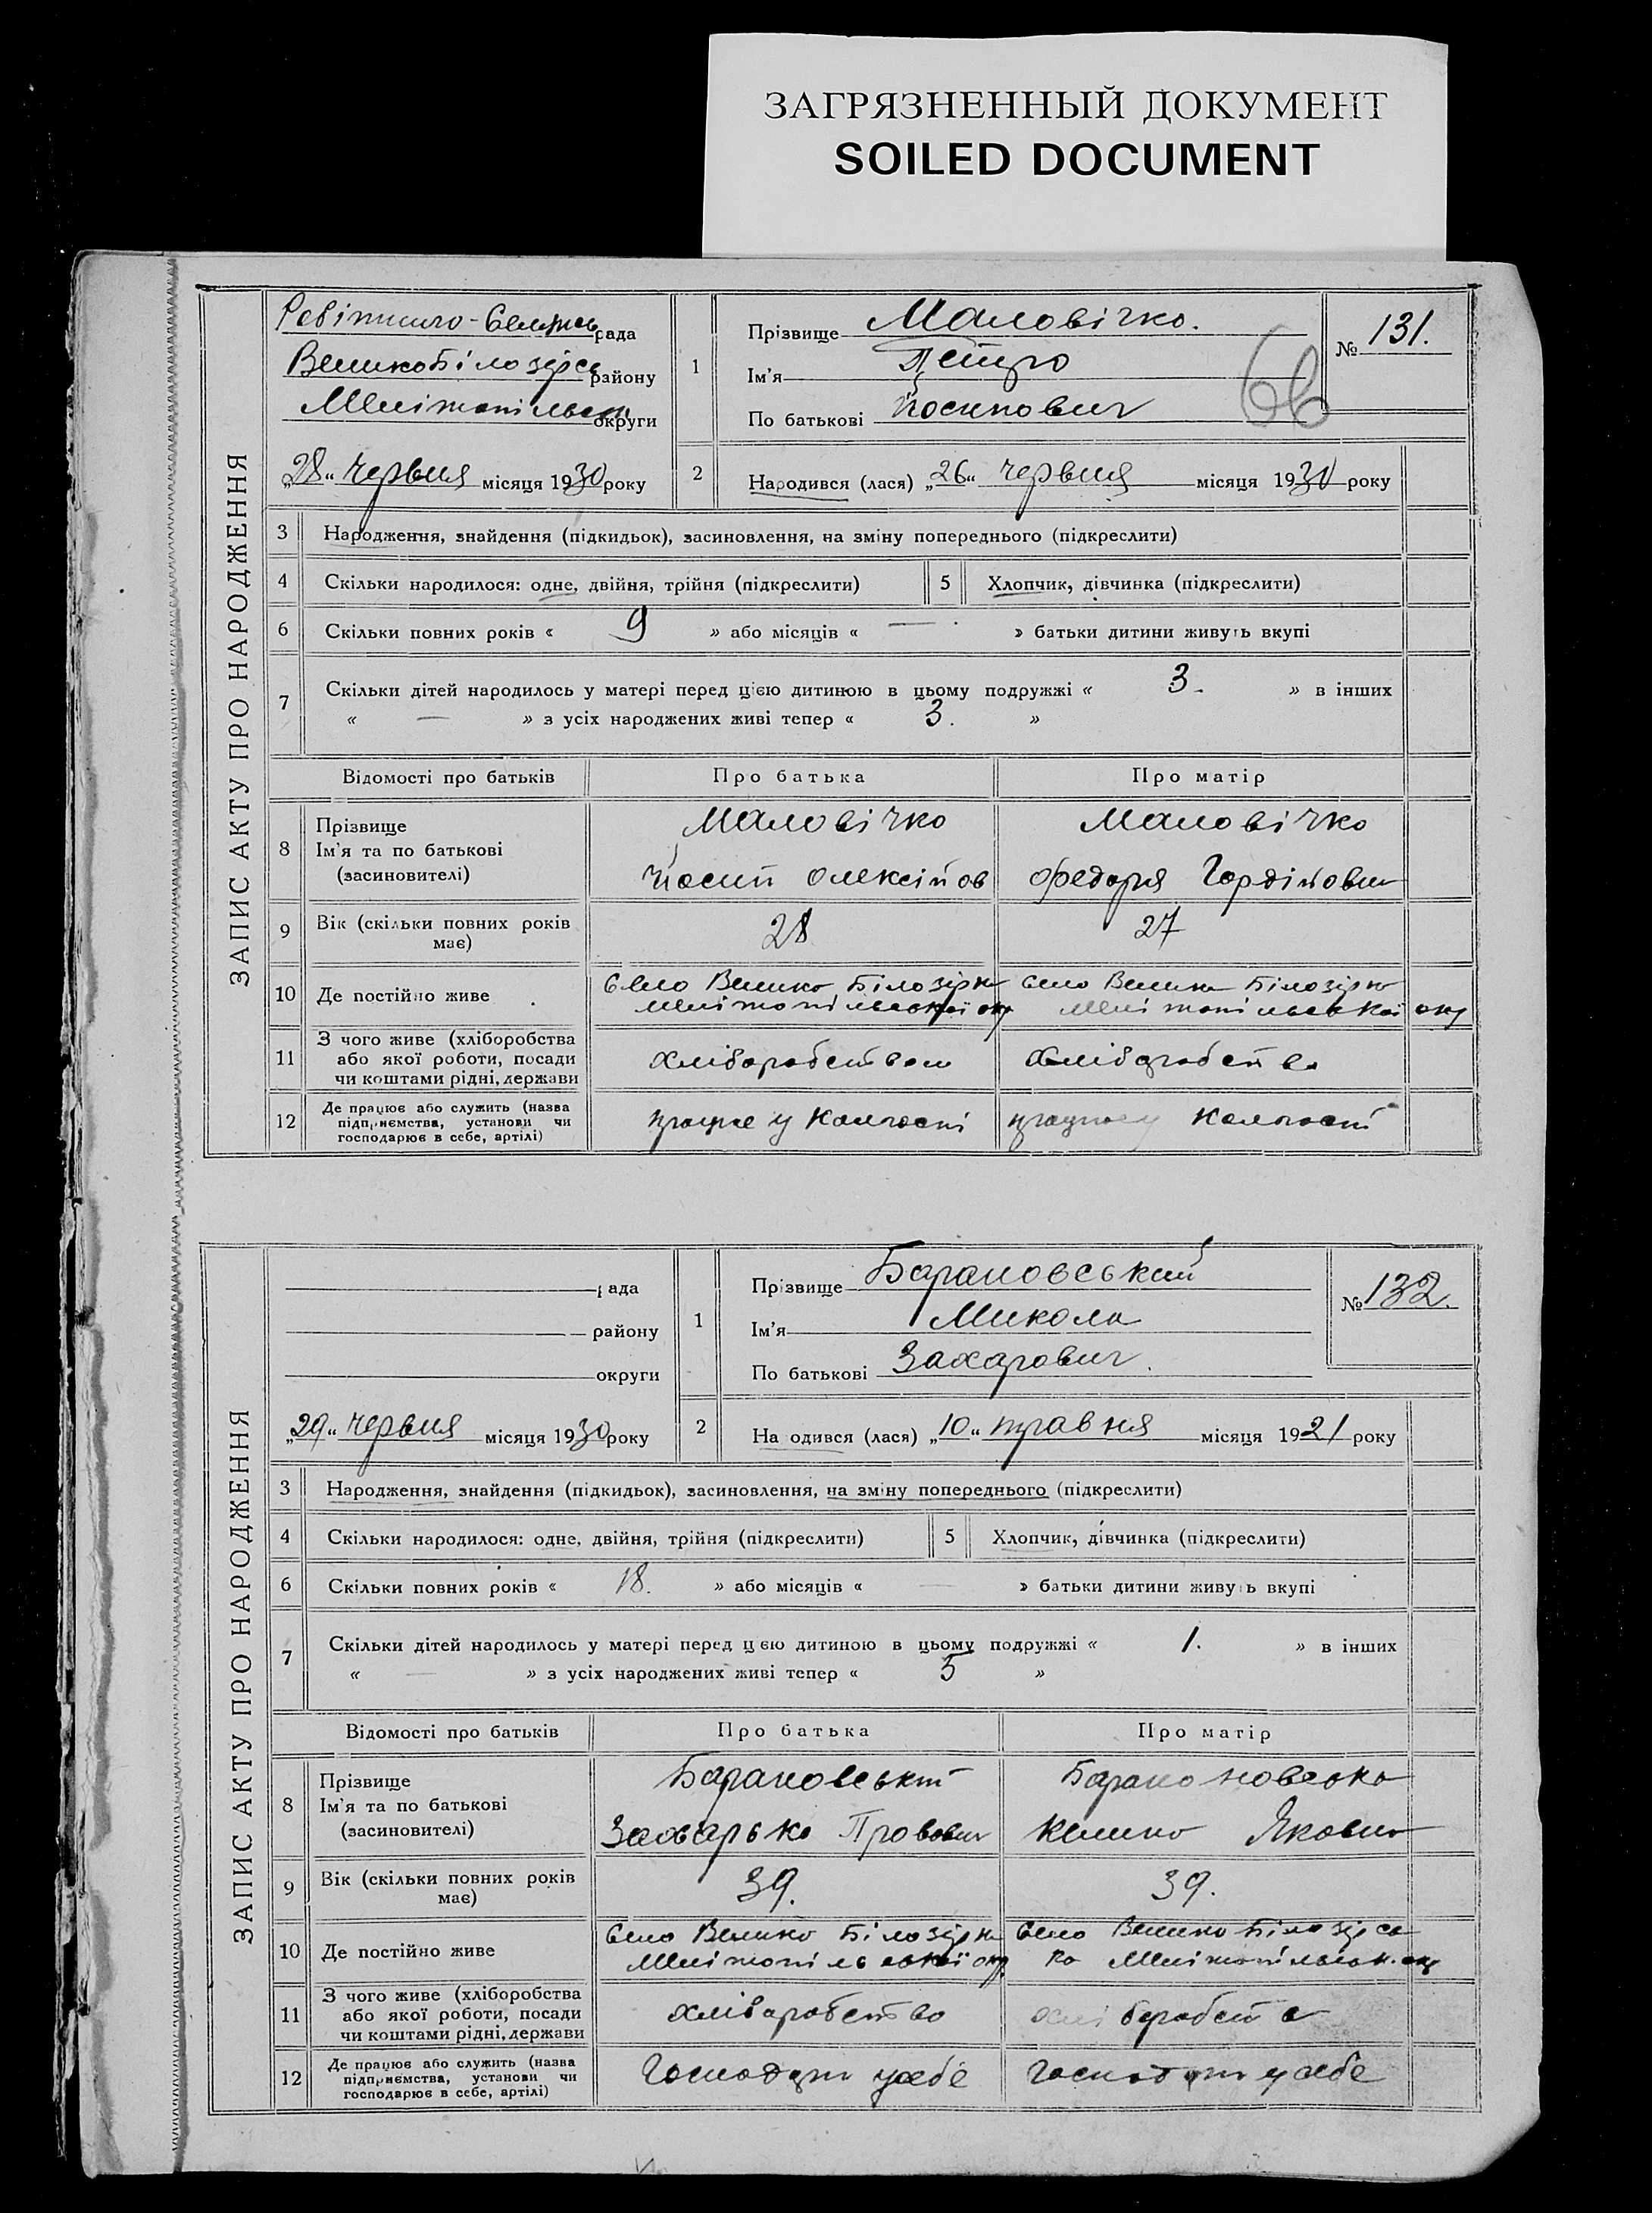 ЗАГРЯЗНЕННЫЙ ДОКУМЕНТ
SOILED DOCUMENT
ЗАПИС АКТУ ПРО НАРОДЖЕННЯ
рада
Великобілозірс району
Мелітопільськ округи
„28“ червня місяця 1930 року
1
Прізвище Маловічко.
Ім'я Петро
По батькові Йосипович
№ 131.
66
2
Народився (лася) „26“ червня місяця 1930 року
3 Народження, знайдення (підкидьок), засиновлення, на зміну попереднього (підкреслити)
4 Скільки народилося: одне, двійня, трійня (підкреслити) 5 Хлопчик, дівчинка (підкреслити)
6 Скільки повних років « 9 » або місяців « — » батьки дитини живуть вкупі
7 Скільки дітей народилось у матері перед цією дитиною в цьому подружжі « 3. » в інших
« — » з усіх народжених живі тепер « 3. »
Відомості про батьків Про батька Про матір
8 Прізвище Маловічко Маловічко
Ім'я та по батькові
(засиновителі) Йосип Олексійов Федоря Гордійовн
9 Вік (скільки повних років має) 28 27
10 Де постійно живе Село Велико Білозірк Село Велика Білозірка
Мелітопільської окр Мелітопільської окр
11 З чого живе (хліборобства
або якої роботи, посади
чи коштами рідні, держави хліборобством хліборобство
12 Де працює або служить (назва
підприємства, установи чи
господарює в себе, артілі) працює у комтості працює у
ЗАПИС АКТУ ПРО НАРОДЖЕННЯ
рада
району
округи
„29“ червня місяця 1930 року
1
Прізвище Барановський
Ім'я Микола
По батькові Захарович.
№ 132.
2
На одився (лася) „10“ травня місяця 1921 року
3 Народження, знайдення (підкидьок), засиновлення, на зміну попереднього (підкреслити)
4 Скільки народилося: одне, двійня, трійня (підкреслити) 5 Хлопчик, дівчинка (підкреслити)
6 Скільки повних років « 18. » або місяців « — » батьки дитини живуть вкупі
7 Скільки дітей народилось у матері перед цією дитиною в цьому подружжі « 1. » в інших
« — » з усіх народжених живі тепер « 5 »
Відомості про батьків Про батька Про матір
8 Прізвище Барановський
Ім'я та по батькові
(засиновителі) Захарько Провович Яковин
9 Вік (скільки повних років має) 39. 39.
10 Де постійно живе Село Велико Білозірк Село Велико Білозірсв
Мелітопільської окр. ка Мелітопільськ. окр
11 З чого живе (хліборобства
або якої роботи, посади
чи коштами рідні, держави хліборобство хліборобств
12 Де працює або служить (назва
підприємства, установи чи
господарює в себе, артілі) Господарю усебе Господарю у себе